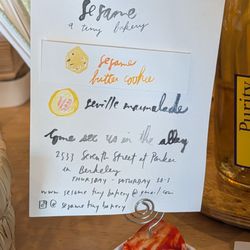 Sesame
a tiny bakery
sesame
butter cookie
seville marmalade
Come see us in the alley
2533 Seventh Street at Parker
in Berkeley
THURSDAY - SATURDAY 10-3
www.sesametinybakery@gmail.com
@sesametinybakery
Purity